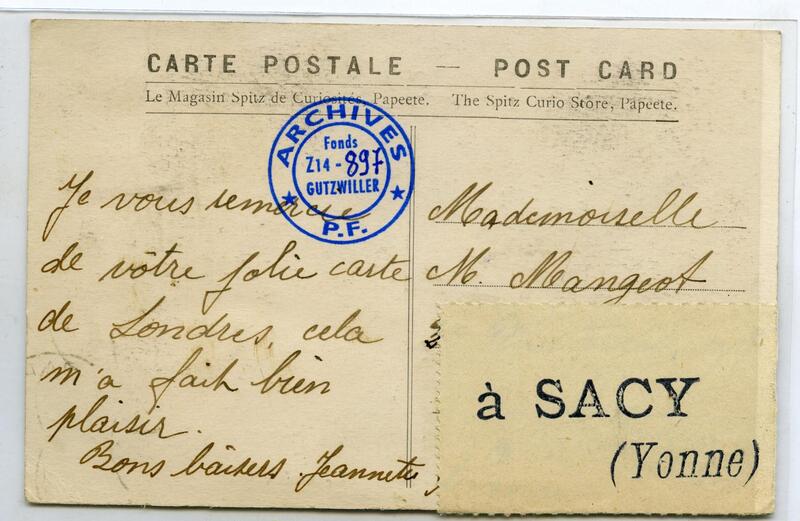 CARTE POSTALE — POST CARD
Le Magasin Spitz de Curiosités, Papeete. The Spitz Curio Store, Papeete.
ARCHIVES
Fonds
Z14-897
GUTZWILLER
P.F.
Je vous remercie
de vôtre jolie carte
de Londres, cela
m'a fait bien
plaisir.
Bons baisers Jeannette
Mademoiselle
M. Mangeot
à SACY
(Yonne)